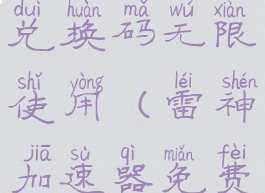 duì huàn mǎ wú xiàn
兑换码无限
shǐ yòng léi shén
使用(雷神
jiā sù qì miǎn fèi
加速器免费